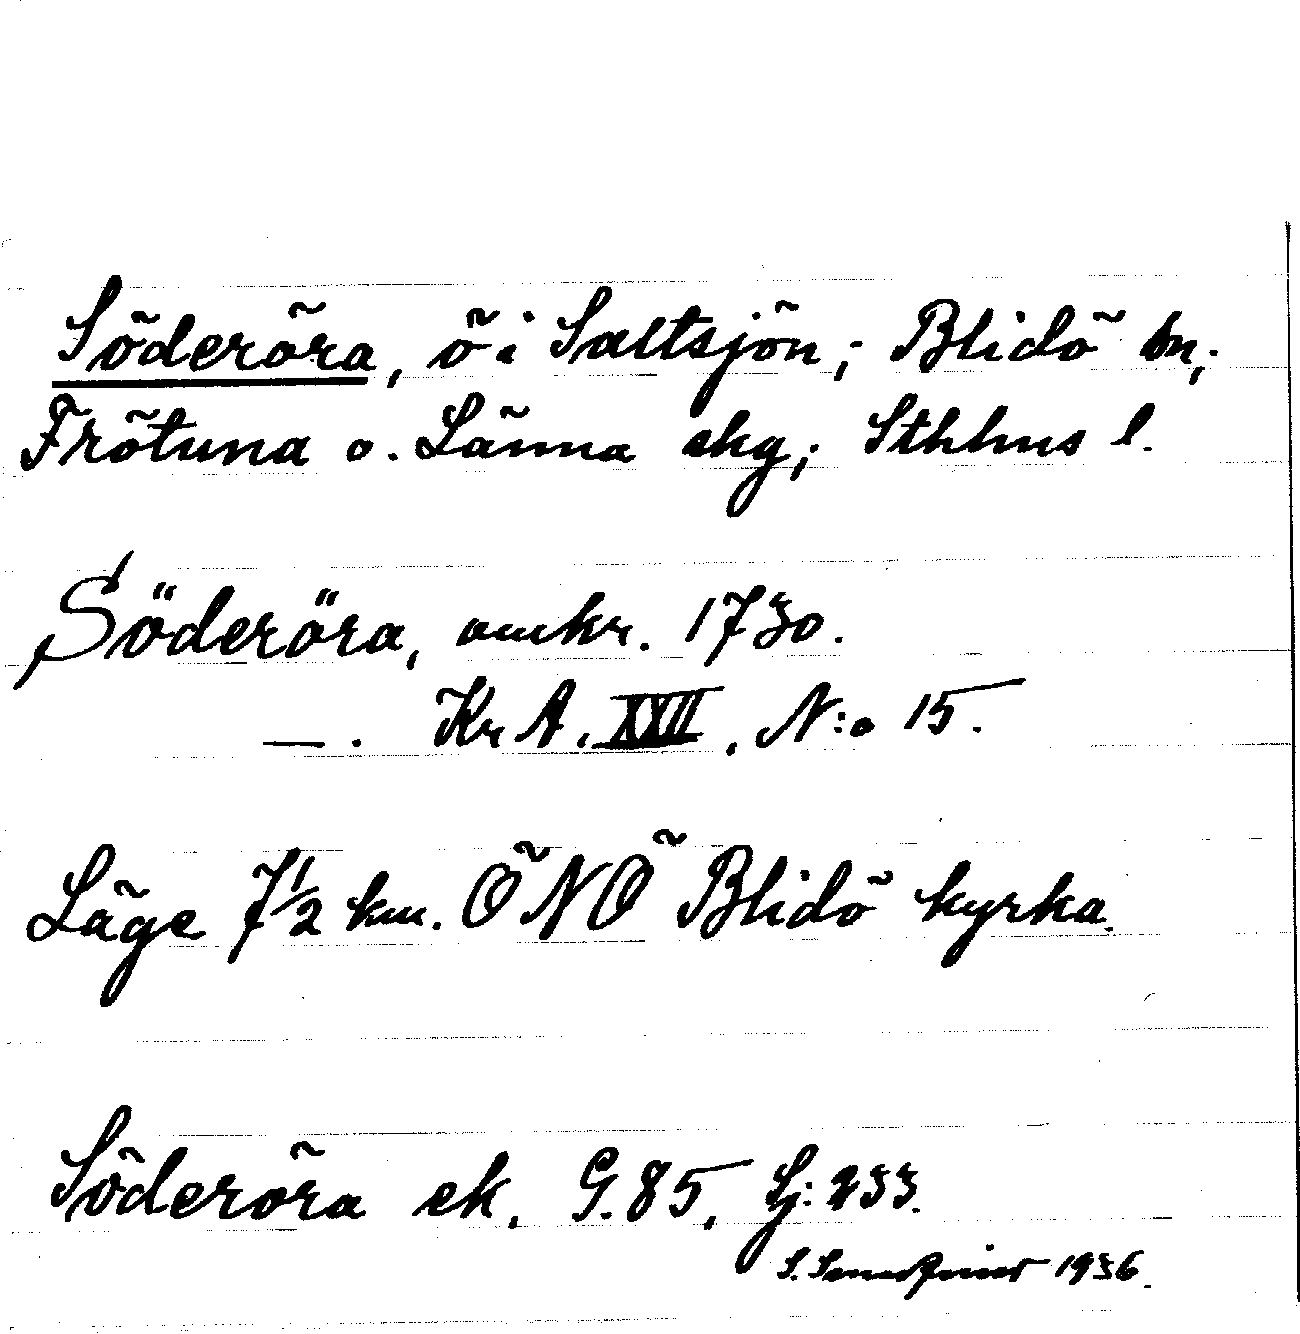 Söderöra, ö i Saltsjön; Blidö sn;
Frötuna o. Länna skg; Sthlms l.
Söderöra, omkr. 1730.
—. Kr A. XXII, N:o 15.
Läge 7 1/2 km. ÖNÖ Blidö kyrka.
Söderöra ek. G. 85, Lj: 233.
S. 1936.